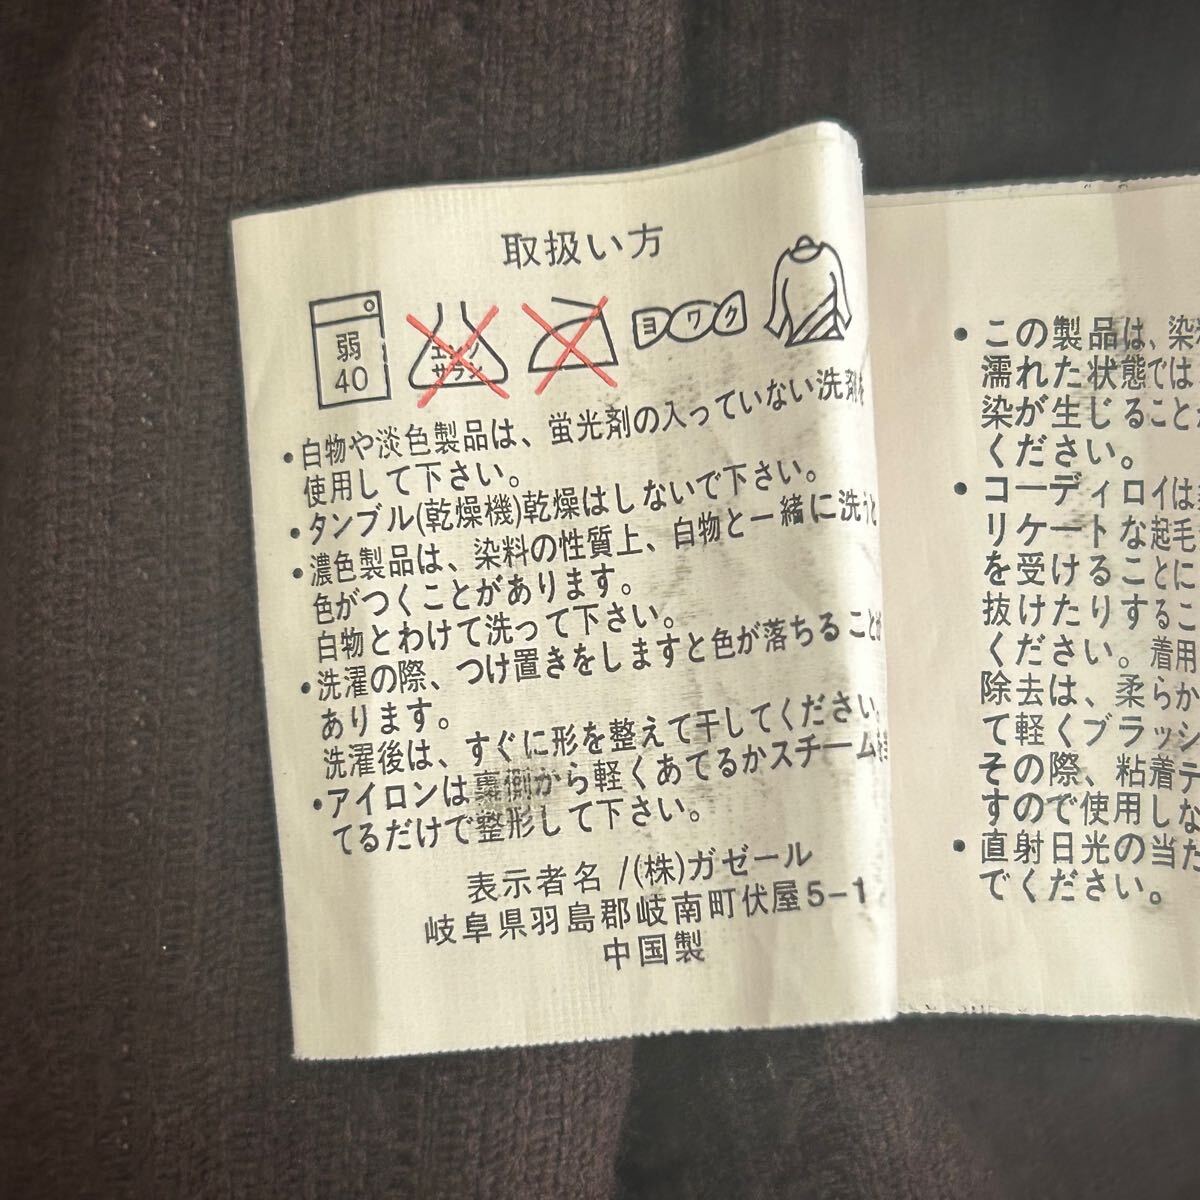 取扱い方
弱
40
エンソ
サラシ
ヨワク
・白物や淡色製品は、蛍光剤の入っていない洗剤を
使用して下さい。
・タンブル(乾燥機)乾燥はしないで下さい。
・濃色製品は、染料の性質上、白物と一緒に洗うと
色がつくことがあります。
白物とわけて洗って下さい。
・洗濯の際、つけ置きをしますと色が落ちることが
あります。
洗濯後は、すぐに形を整えて干してください。
・アイロンは裏側から軽くあてるかスチームを当
てるだけで整形して下さい。
表示者名 /(株)ガゼール
岐阜県羽島郡岐南町伏屋5-1
中国製
・この製品は、染料
濡れた状態では
染が生じること
ください。
・コーディロイは
リケートな起毛
を受けることに
抜けたりするこ
ください。着用
除去は、柔らか
て軽くブラッシ
その際、粘着テ
すので使用しな
・直射日光の当た
でください。